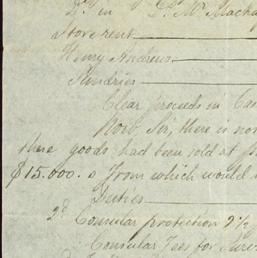 Store rent
Henry Andrews
Sundries
Clear proceeds in Ca
Now, Sir, there is no
these goods had been sold at
$15.000. o From which would
Duties
2d Consular protection 2½
Consular Fees for